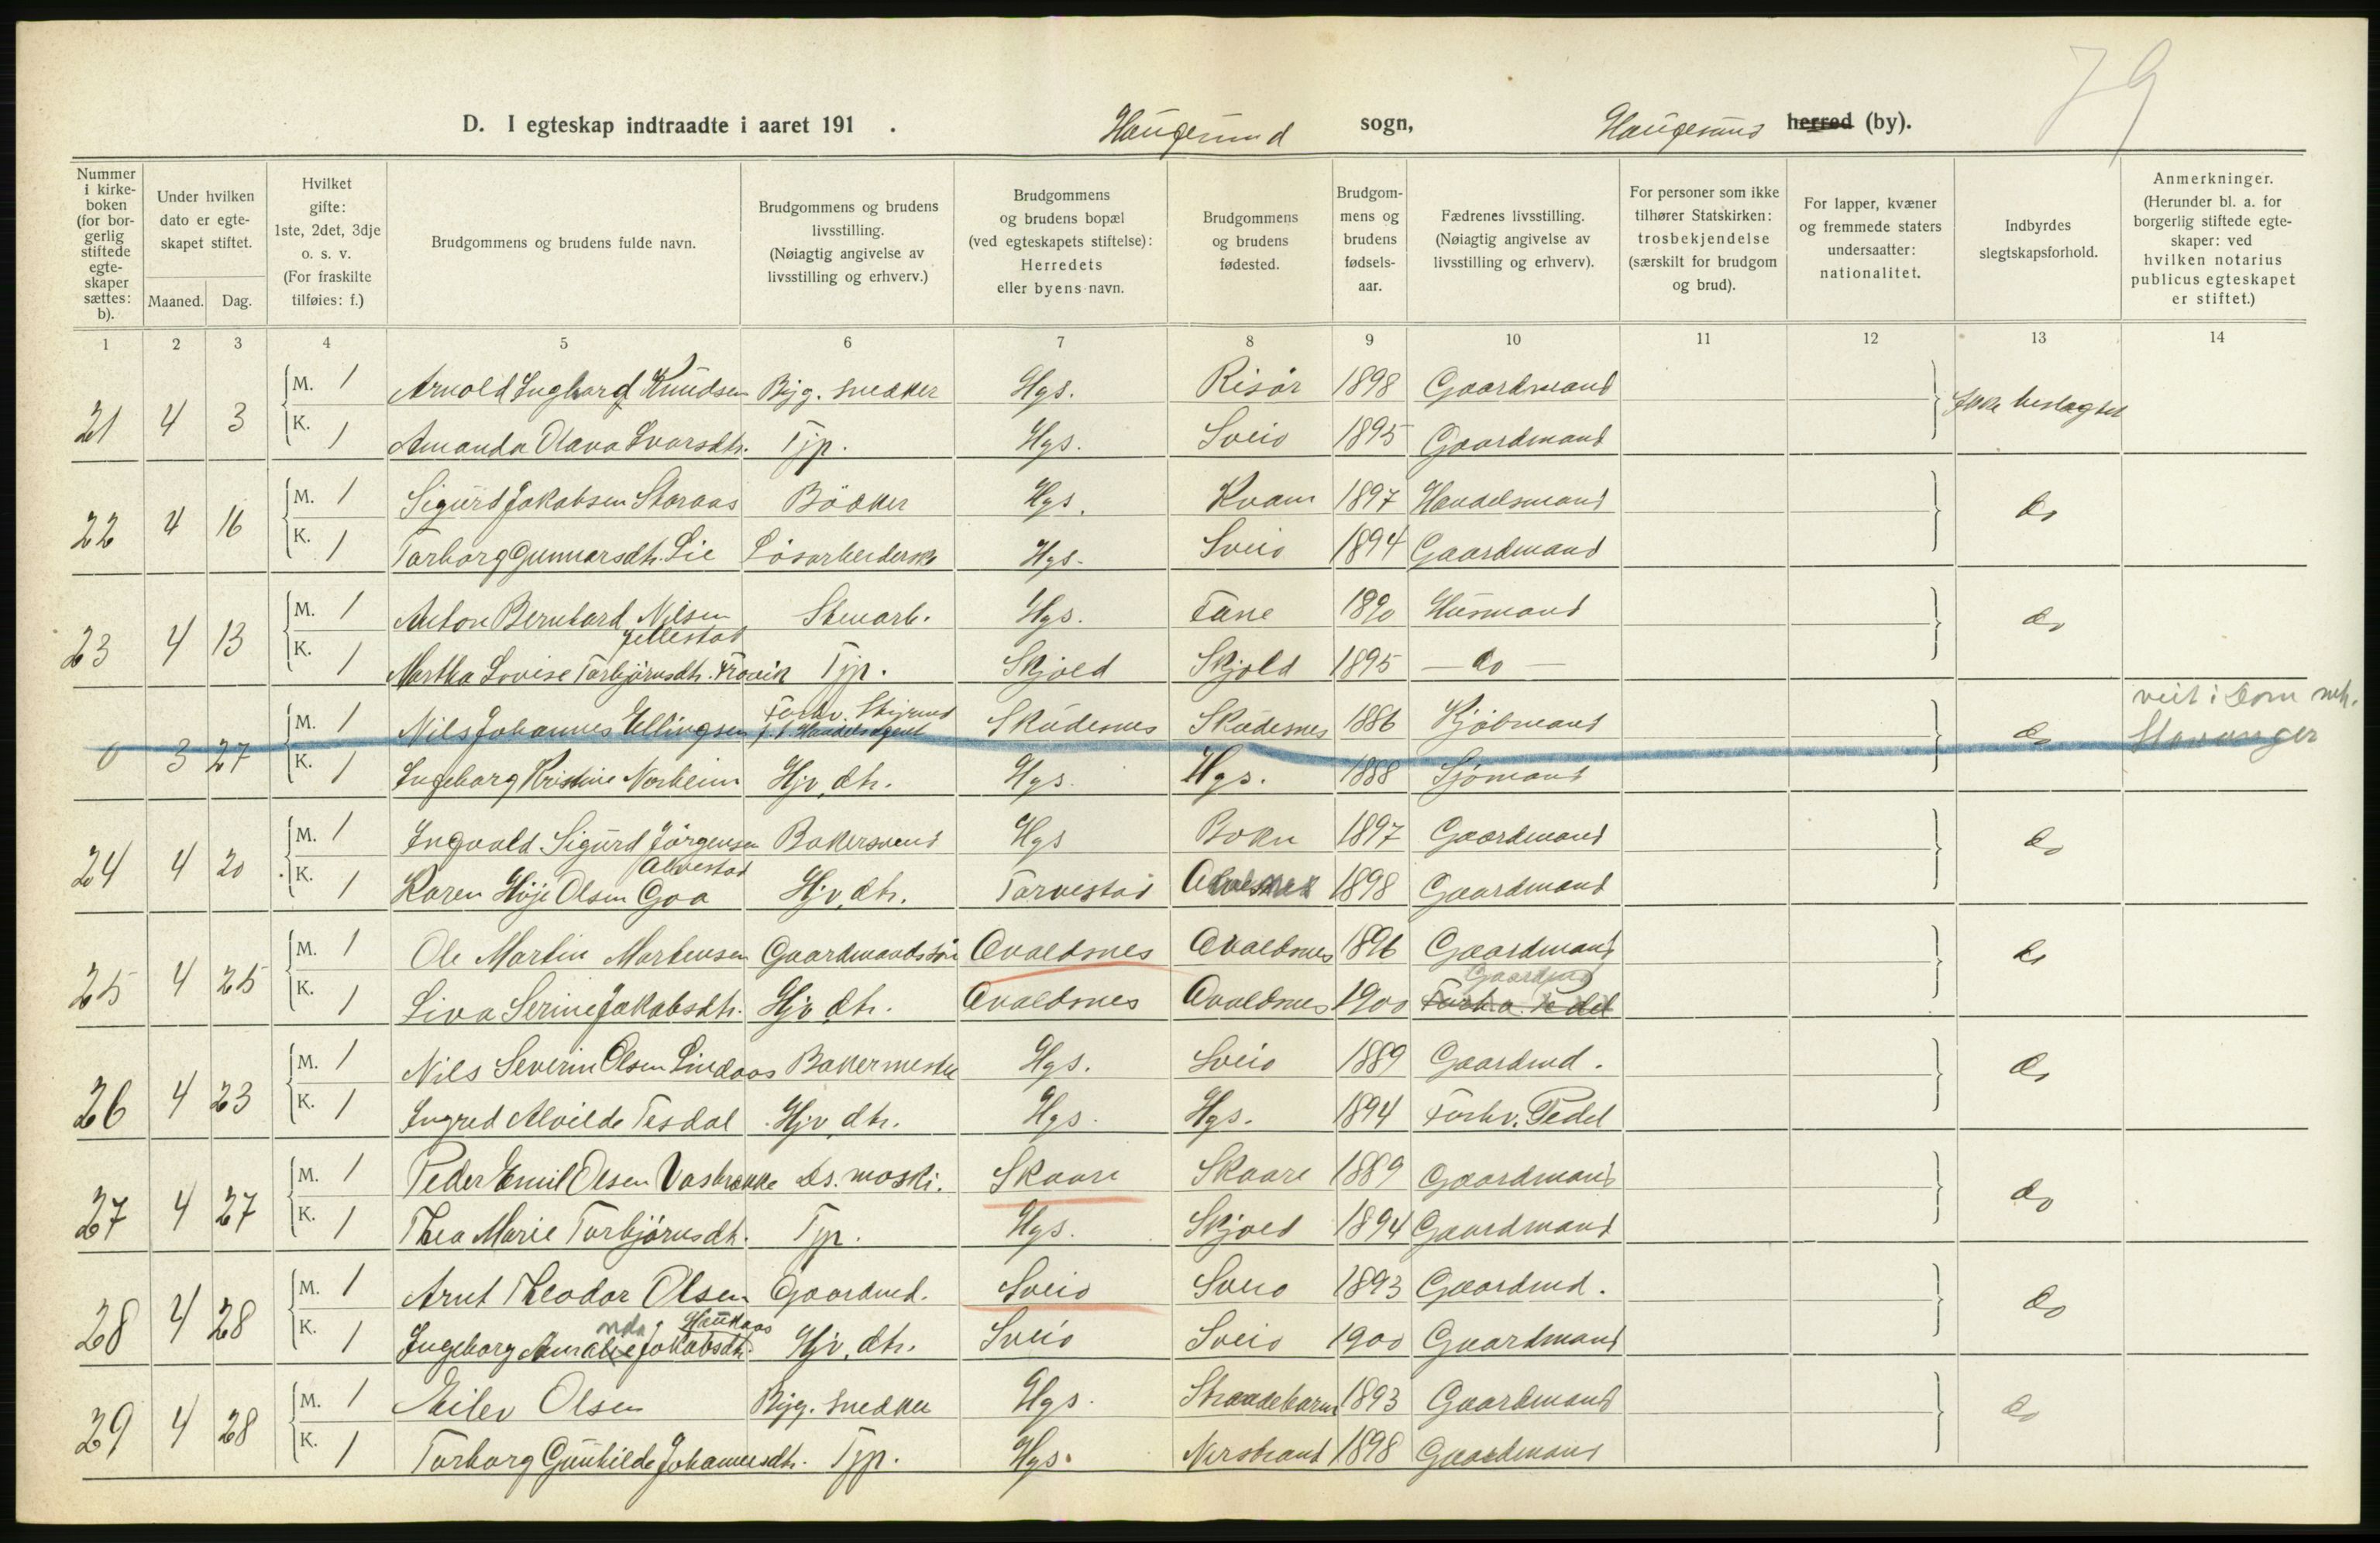 79
D. I egteskap indtraadte i aaret 191 . Haugesund sogn, Haugesund herred (by).
Nummer i kirkeboken (for borgerlig stiftede egteskaper sættes: b).
Under hvilken dato er egteskapet stiftet.
Maaned. Dag.
Hvilket gifte: 1ste, 2det, 3dje o. s. v. (For fraskilte tilføies: f.)
Brudgommens og brudens fulde navn.
Brudgommens og brudens livsstilling. (Nøiagtig angivelse av livsstilling og erhverv.)
Brudgommens og brudens bopæl (ved egteskapets stiftelse): Herredets eller byens navn.
Brudgommens og brudens fødested.
Brudgommens og brudens fødselsaar.
Fædrenes livsstilling. (Nøiagtig angivelse av livsstilling og erhverv).
For personer som ikke tilhører Statskirken: trosbekjendelse (særskilt for brudgom og brud).
For lapper, kvæner og fremmede staters undersaatter: nationalitet.
Indbyrdes slegtskapsforhold.
Anmerkninger. (Herunder bl. a. for borgerlig stiftede egteskaper: ved hvilken notarius publicus egteskapet er stiftet.)
1 2 3 4 5 6 7 8 9 10 11 12 13 14
21 4 3 M. 1 Arnold Ingbard Knudsen Byg. snedker Hgs. Risör 1898 Gaardmand Ikke beslegtet
K. 1 Amanda Olava Ivarsdtr. Tjp. Hgs. Sveio 1895 Gaardmand
22 4 16 M. 1 Sigurd Jakobsen Storaas Bödker Hgs. Kvam 1897 Handelsmand do
K. 1 Torborg Gunnarsdtr. Lie Lösarbeiderske Hgs. Sveio 1894 Gaardmand
23 4 13 M. 1 Anton Bernhard Nilsen Jellestad Stenarb. Hgs. Fane 1890 Husmand do
K. 1 Martha Lovise Torbjörnsdtr. Frövik Tjp. Skjold Skjold 1895 — do —
0 3 27 M. 1 Nils Johannes Ellingsen Forhv. Styrmd f. t. Handelsagent Skudesnes Skudesnes 1886 Kjöbmand do viet i Dom mk. Stavanger
K. 1 Ingeborg Kristine Norheim Hjv. dtr. Hgs. Hgs. 1888 Sjömand
24 4 20 M. 1 Ingvald Sigurd Jörgensen Alvestad Bakersvend Hgs Bokn 1897 Gaardmand do
K. 1 Karen Höje Olsen Goa Hjv. dtr. Torvestad 1898 Gaardmand
25 4 25 M. 1 Ole Martin Mortensen Gaardmandssön Avaldsnes Avaldsnes 1896 Gaardmand do
K. 1 Liva Serine Jakobsdtr. Hjv. dtr. Avaldsnes Avaldsnes 1900 Gaardmd
26 4 23 M. 1 Nils Severin Olsen Lindaas Bakermester Hgs. Sveio 1889 Gaardmd. do
K. 1 Ingred Alvilde Tesdal Hjv. dtr. Hgs. Hgs. 1894 Forhv. Pedel
27 4 27 M. 1 Peder Emil Olsen Vasbrekke ds. maski. Skaare Skaare 1889 Gaardmand do
K. 1 Thea Marie Torbjörnsdtr. Tjp. Hgs. Skjold 1894 Gaardmand
28 4 28 M. 1 Arnt Theodor Olsen Gaardmd. Sveio Sveio 1893 Gaardmd. do
K. 1 Ingeborg Amalie nda Jokobsdtr. Haukaas Hjv. dtr. Sveio Sveio 1900 Gaardmand
29 4 28 M. 1 Eilev Olsen Byg. snedker Hgs. Strandebarm 1893 Gaardmand do
K. 1 Torborg Gunhilde Johannesdtr. Tjp. Hgs. Nerstrand 1898 Gaardmand